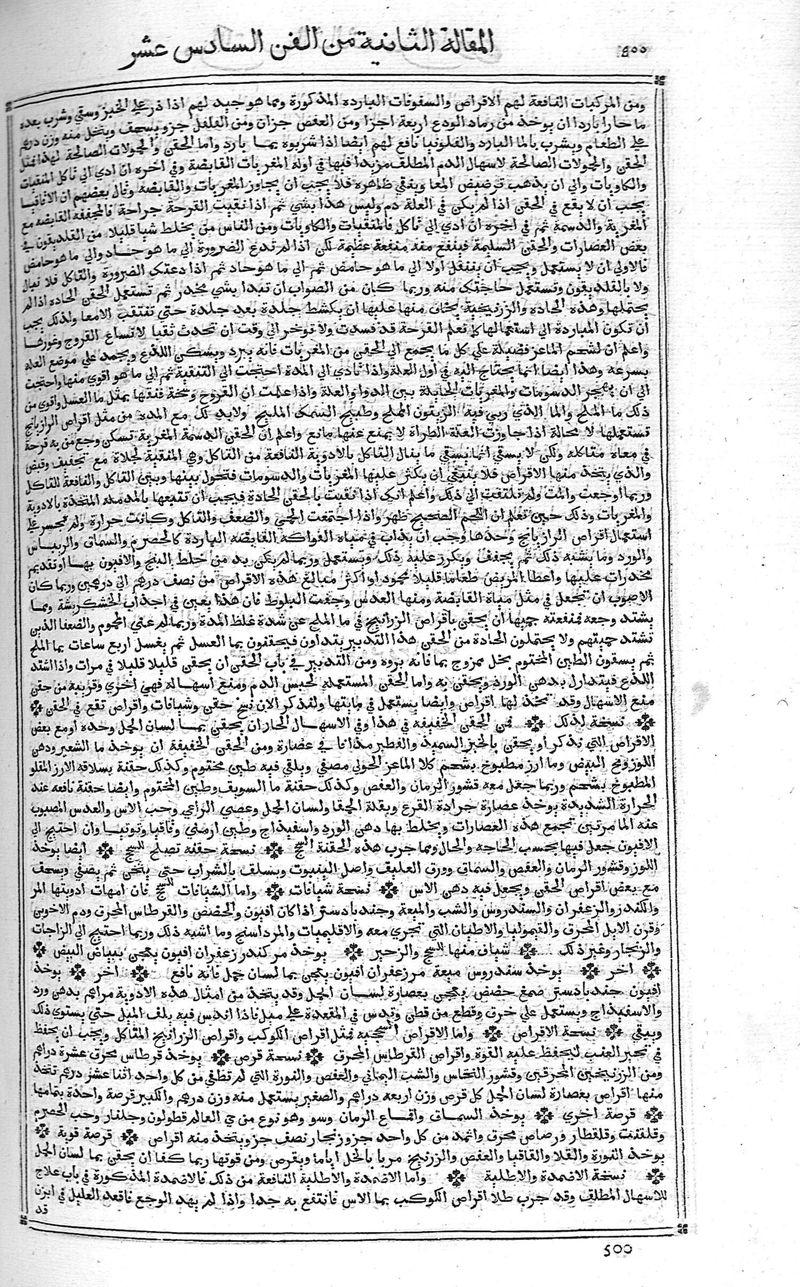 ٥٠٠
المقالة الثانية من الفن السادس عشر
ومن المركبات النافعة لهم الاقراص والسفوفات الباردة المذكورة ومما هو جيد لهم اذا ذر على الخبز وسقي وشرب بعده
ما حارا باردا ان يوخذ من رماد الودع اربعة اجزا ومن العفص جزان ومن الفلفل جزو يسحف وينخل منه وزن درهم
على الطعام ويشرب بالما البارد والفلونيا نافع لهم ايضا اذا شربوه بما بارد واما الحقن والحمولات الصالحة لهذا فمثل
الحقن والحمولات الصالحة لاسهال الدم المطلق مزيدا فيها في اوله المغريات القابضة وفي اخره ان ادي الي تاكل المنقيات
والكاويات والي ان يذهب ترضيض المعا ويبقي ظاهره فلا يجب ان يجاوز المغريات والقابضة وقال بعضهم ان الاقاقيا
يجب ان لا يقع في الحقن اذا لم يكن في العلة دم وليس هذا بشي ثم اذا نقيت القرحة جراحة فالمجففة القابضة مع
المغرية والدسمة ثم في اخره ان ادي الي تاكل فالمنقيات والكاويات ومن الناس من يخلط شيا قليلا من القلديقون في
بعض العصارات والحقن السليمة فينفع معه منفعة عظيمة لكن اذا لم تدع الضرورة الي ما هو حاد والي ما هو حامض
فالاولي ان لا يستعمل ويجب ان ينتقل اولا الي ما هو حامض ثم الي ما هو حاد ثم اذا دعتك الضرورة والتاكل فلا تبال
ولا بالقلديقون وتستعمل حاجتك منه وربما كان من الصواب ان تبدا بشي مخدر ثم تستعمل الحقن الحادة اذا لم
يحتملها وهذه الحادة والزرنيخية يخاف منها عليها ان يكشط جلدة بعد جلدة حتي تنثقب الامعا ولذلك يجب
ان تكون المبادرة الي استعمالها كما تعلم القرحة قد فسدت ولا توخر الي وقت ان تحدث ثقبا لاتساع القروح وغورها
واعلم ان لشحم الماعز فضيلة علي كل ما يجمع الي الحقن من المغريات فانه يبرد ويسكن اللذع ويجمد علي موضع العلة
بسرعة وهذا ايضا انما يحتاج اليه في اول العلة واذا تادي الي المدة احتجت الي التنقية ثم الي ما هو اقوي منها واحتجت
الي ان تهجر الدسومات والمغريات الحايلة بين الدوا والعلة واذا علمت ان القروح وسخة فنقها بمثل ما العسل واقوي من
ذلك ما الملح والما الذي ربي فيه الزيتون المملح وطبيخ السمك المليح ولا بد لك مع المدة من مثل اقراص الرازيانج
تستعملها لا محالة اذا جاوزت العلة الطراة لا يمنع عنها مانع واعلم ان الحقن الدسمة المغرية تسكن وجع من به قرحة
في معاه متاكلة ولكن لا يستي انما يستي ما ينال التاكل بالادوية النافعة من التاكل وهي المنقية لجلاة مع تجفيف وقبض
والذي يتخذ منها الاقراص فلا ينبغي ان يكثر عليها المغريات والدسومات فتحول بينها وبين التاكل والنافعة للتاكل
وربما اوجعت والمت ولم تلتفت الي ذلك واعلم انك اذا نقيت بالحقن الحادة فيجب ان تتبعها بالمدملة المتخذة بالادوية
والمغريات وذلك حين تعلم ان اللحم الصحيح ظهر واذا اجتمعت الحمي والضعف والتاكل وكانت حرارة ولم تجسر علي
استعمال اقراص الرازيانج وحدها وجب ان يذاب في مياه الفواكه القابضة الباردة كالحصرم والسماق والريباس
والورد وما يشبه ذلك ثم يجفف ويكرر عليه ذلك وتستعمل وربما لم يكن بد من خلط البنج والافيون بها او تقديم
مخدرات عليها واعطا المريض طعاما قليلا محمود او اكثر مبالغ هذه الاقراص من نصف درهم الي درهمين وربما كان
الاصوب ان تجعل في مثل مياه القابضة ومنها العدس وجفت البلوط فان هذا يعين في احداث الخشكريشة ومما
يشتد وجعه فمنفعته حينها ان يحقن باقراص الزرانيخ في ما الملح عن شدة غلظ المدة وربما لم عني المحموم والضعفا الذين
تشتد حميتهم ولا يحتملون الحادة من الحقن هذا التدبير يتداون فيحقنون بما العسل ثم يغسل اربع ساعات بما الملح
ثم يسقون الطين المختوم بخل ممزوج بما فانه بروه ومن التدبير في باب الحقن ان يحقن قليلا قليلا في مرات واذا اشتد
اللذع فيتدارك بدهن الورد ويحقن به واما الحقن المستعملة لحبس الدم ومنع اسهاله فهي اخري وقريبة من حقن
منع الاسهال وقد تتخذ لها اقراص وايضا يستعمل في مايتها ولنذكر الان نسخ حقن وشيافات واقراص تقع في الحقن
نسخة لذلك فمن الحقن الخفيفة في هذا وفي الاسهال الحار ان يحقن بما لسان الحمل وحده او مع بعض
الاقراص التي تذكر او يحقن بالخبز السميد والفطير مدافا في عصارة ومن الحقن الخفيفة ان يوخذ ما الشعير ودهن
اللوز ومح البيض وما ارز مطبوخ بشحم كلا الماعز الحولي مصفي ويلقي فيه طين مختوم وكذلك حقنة بسلاقة الارز المقلو
المطبوخ بشحم وربما جعل معه قشور الرمان والعفص وكذلك حقنة ما السويق وطين المختوم وايضا حقنة نافعة عند
الحرارة الشديدة يوخذ عصارة جرادة القرع وبقلة الحمقا ولسان الحمل وعصي الراعي وحب الاس والعدس المصبوب
عنه الما مرتين تجمع هذه العصارات ويخلط بها دهن الورد واسفيداج وطين ارمني وقاقيا وتوتيا وان احتيج الي
الافيون جعل فيها بحسب الحاجة والحال ومما جرب هذه الحقنة للسحج نسخة حقنة تصلح للسحج ايضا يوخذ
اللوز وقشور الرمان والعفص والسماق وورق العليف واصل الينبوت ويسلف بالشراب حتي ينضج ثم يصفي ويسحف
مع بعض اقراص الحقن ويجعل فيه دهن الاس نسخة شيافات واما الشيافات للسحج فان امهات ادويتها المر
والكندر والزعفران والسندروس والشب والميعة وجندبادستر اذا كان افيون والحضض والقرطاس المحرق ودم الاخوين
وقرن الايل المحرق والقيموليا والاطيان التي تجري معه والاقليميات والمرداسنج وما اشبه ذلك وربما احتيج الي الزاجات
والزنجار وغير ذلك شياف منها للسحج والزحير يوخذ مر كندر زعفران افيون يعجن ببياض البيض
اخر يوخذ سندروس ميعة مر زعفران افيون يعجن بما لسان حمل فانه نافع اخر يوخذ
افيون جندبادستر صمغ حضض يعجن بعصارة لسان الحمل وقد يتخذ من امثال هذه الادوية مراهم بدهن ورد
والاسفيداج ويستعمل علي خرق وقطع من قطن وتدس في المقعدة علي ميل فاذا اندس فيه يلف الميل حتي يستوي ذلك
ويبقي نسخة الاقراص واما الاقراص السحجية فمثل اقراص الكوكب واقراص الزرانيخ للتاكل ويجب ان يحفظ
في تجير العنب ليحفظ عليه القوة واقراص القرطاس المحرق نسخة قرص يوخذ قرطاس محرق عشرة دراهم
ومن الزرنيخين المحرقين وقشور النحاس والشب اليماني والعفص والنورة التي لم تطفي من كل واحد اثنا عشر درهم تتخذ
منها اقراص بعصارة لسان الحمل كل قرص وزن اربعه دراهم والصغير يستعمل منه وزن درهم والكبير قرصة واحدة بتمامها
قرصة اخري يوخذ السماق واقماع الرمان وسو وهو نوع من حي العالم قطولون وجلنار وحب الحصرم
وقلقنت وقلقطار ورصاص محرق واثمد من كل واحد جزو زنجار نصف جزو يتخذ منه اقراص قرصة قوية
يوخذ النورة والقلا والقاقيا والعفص والزرنيخ مربا بالخل اياما ويقرص ومن قوتها ربما كفا ان يحقن بما لسان الحمل
نسخة الاضمدة والاطلية واما الاضمدة والاطلية النافعة من ذلك فالاضمدة المذكورة في باب علاج
للاسهال المطلف وقد جرب طلا اقراص الكوكب بما الاس فانتفع به جدا واذا لم يهد الوجع فاقعد العليل في ابزن
قد
500